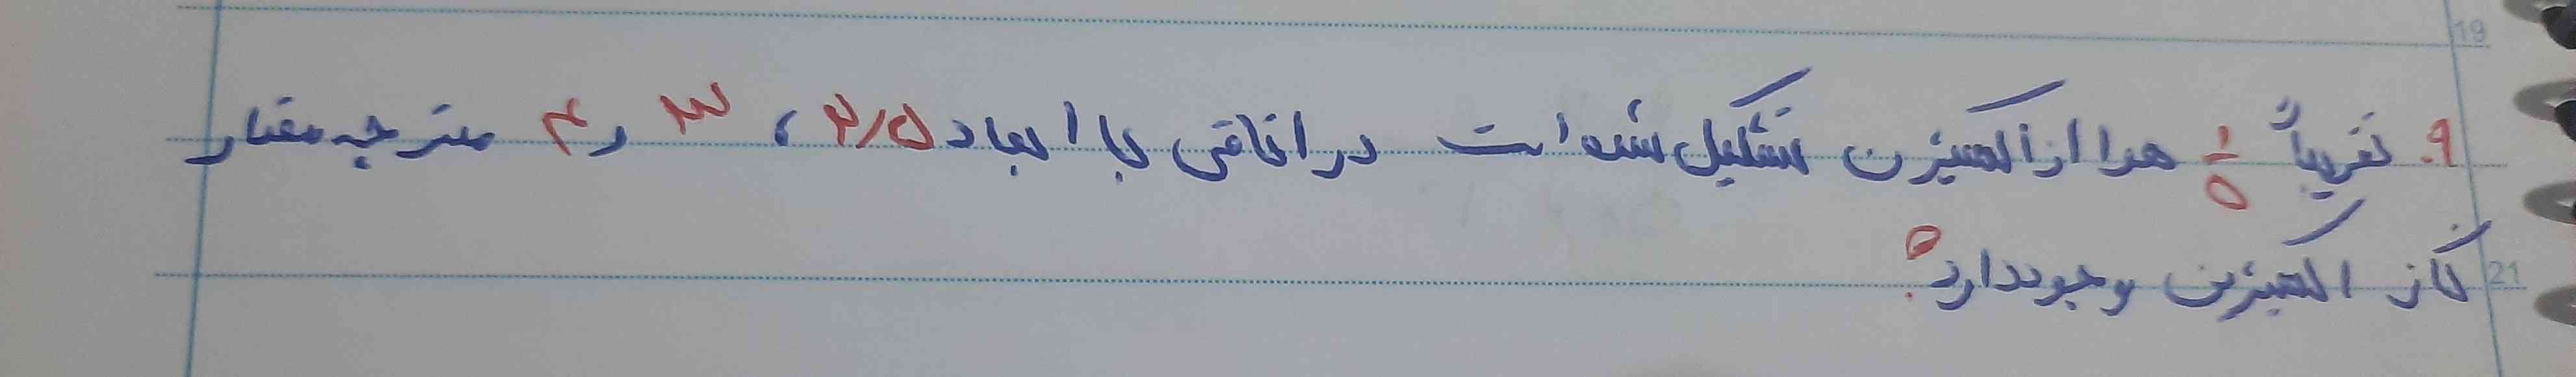 19
۹. تقریباً ۱/۵ هوا از اکسیژن تشکیل شده است در اتاقی با ابعاد ۲/۵ ، ۳ و ۴ متر چه مقدار
21 گاز اکسیژن وجود دارد؟